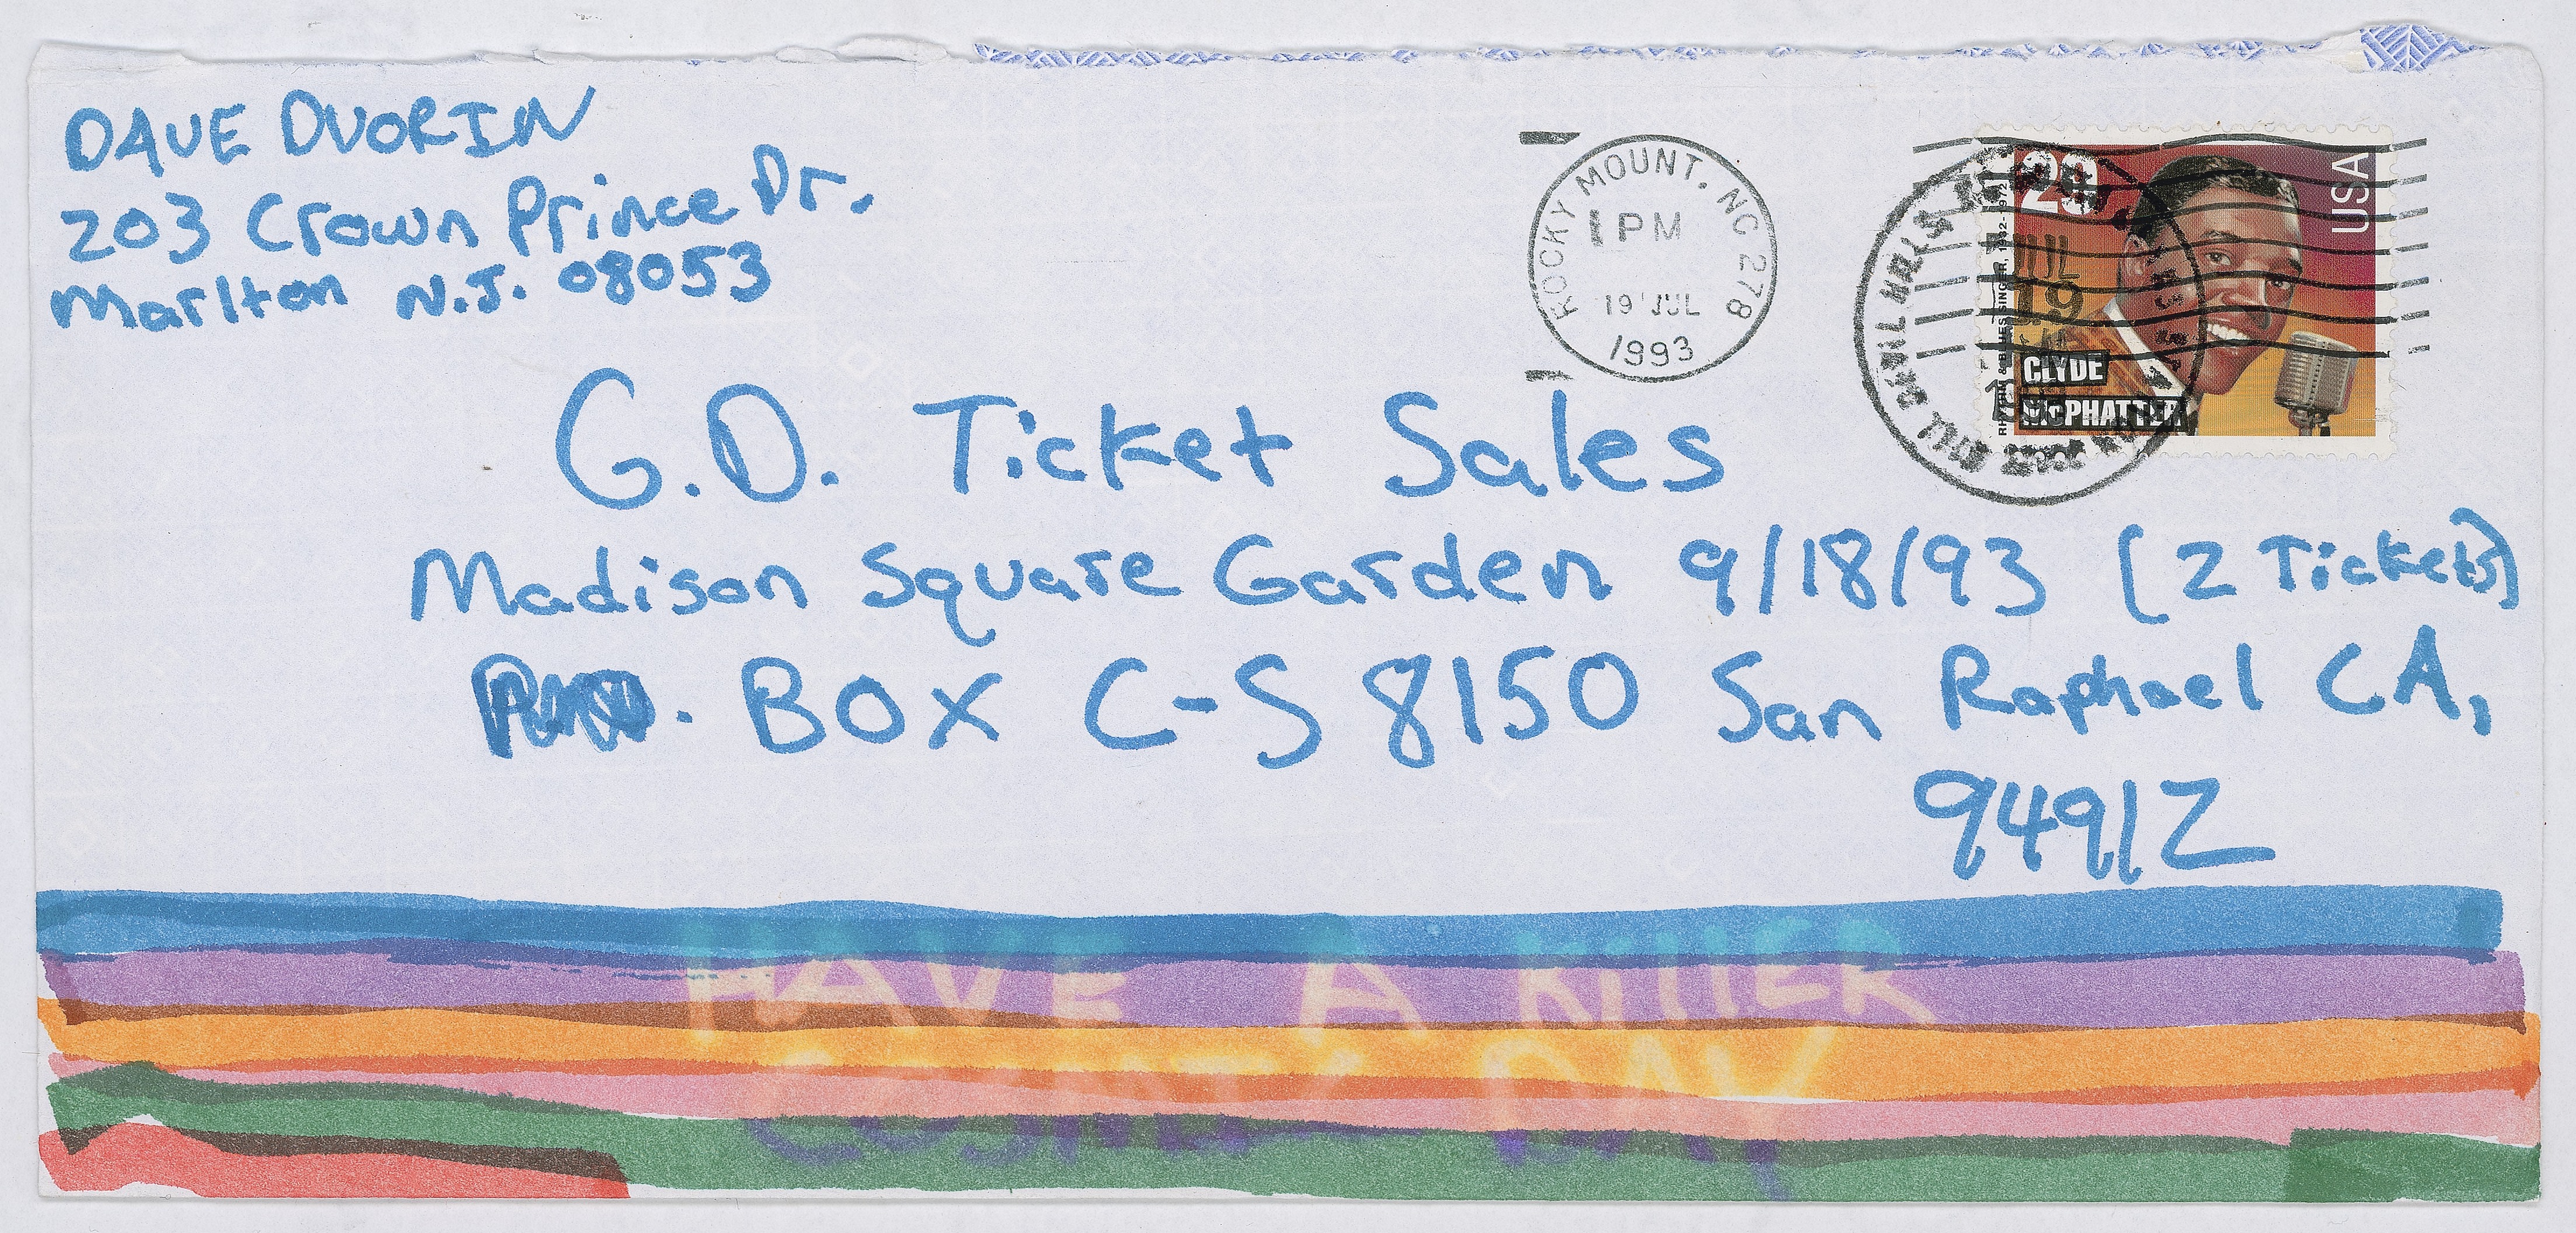 DAVE DVORIN
203 Crown Prince Dr.
Marlton N.J. 08053
ROCKY MOUNT, NC 278
1 PM
19 JUL
1993
29
USA
JUL
19
CLYDE
McPHATTER
G.D. Ticket Sales
Madison Square Garden 9/18/93 (2 Tickets)
. BOX C-S 8150 San Raphael CA,
94912
HAVE A KILLER
COSMIC DAY